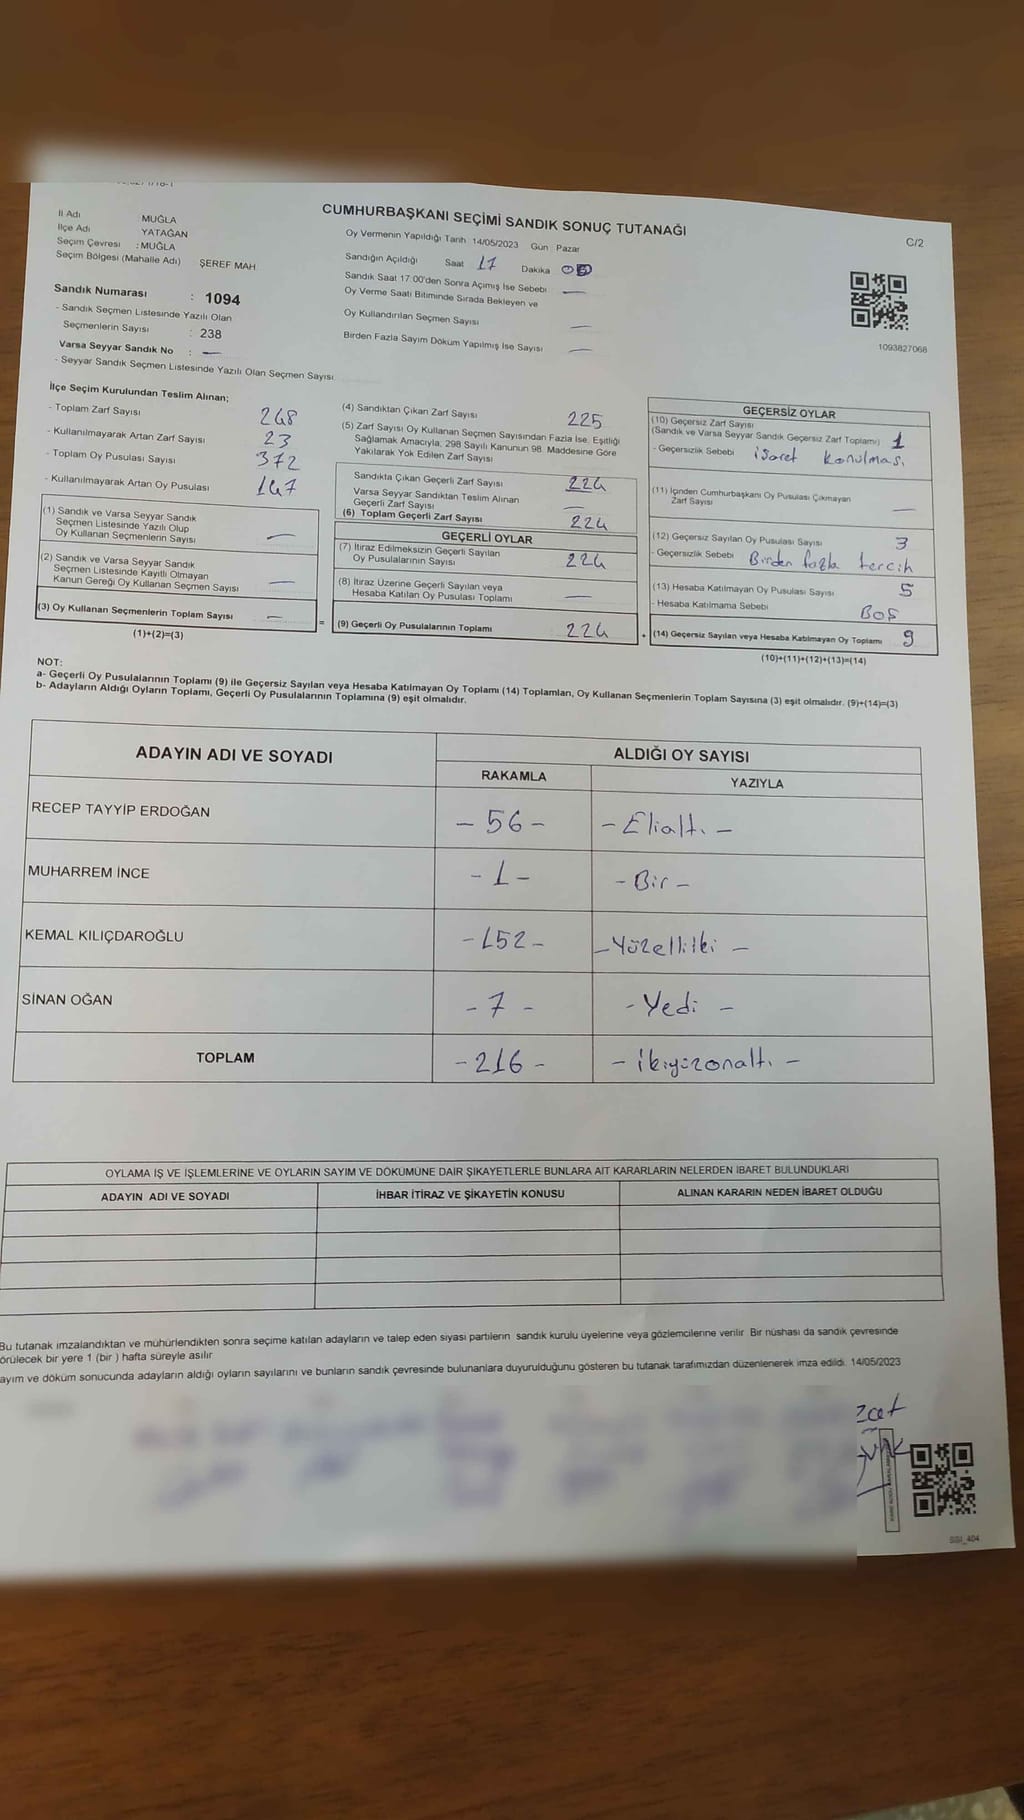 CUMHURBAŞKANI SEÇİMİ SANDIK SONUÇ TUTANAĞI
C/2
İl Adı MUĞLA
İlçe Adı YATAĞAN
Seçim Çevresi : MUĞLA
Seçim Bölgesi (Mahalle Adı) ŞEREF MAH
Sandık Numarası : 1094
- Sandık Seçmen Listesinde Yazılı Olan
Seçmenlerin Sayısı : 238
Varsa Seyyar Sandık No : —
- Seyyar Sandık Seçmen Listesinde Yazılı Olan Seçmen Sayısı
Oy Vermenin Yapıldığı Tarih 14/05/2023 Gün Pazar
Sandığın Açıldığı Saat 17 Dakika
Sandık Saat 17:00'den Sonra Açımış İse Sebebi —
Oy Verme Saati Bitiminde Sırada Bekleyen ve
Oy Kullandırılan Seçmen Sayısı —
Birden Fazla Sayım Döküm Yapılmış İse Sayısı —
1093827068
İlçe Seçim Kurulundan Teslim Alınan;
- Toplam Zarf Sayısı 248
- Kullanılmayarak Artan Zarf Sayısı 23
- Toplam Oy Pusulası Sayısı 372
- Kullanılmayarak Artan Oy Pusulası 147
(1) Sandık ve Varsa Seyyar Sandık
Seçmen Listesinde Yazılı Olup
Oy Kullanan Seçmenlerin Sayısı —
(2) Sandık ve Varsa Seyyar Sandık
Seçmen Listesinde Kayıtlı Olmayan
Kanun Gereği Oy Kullanan Seçmen Sayısı —
(3) Oy Kullanan Seçmenlerin Toplam Sayısı —
(1)+(2)=(3)
(4) Sandıktan Çıkan Zarf Sayısı 225
(5) Zarf Sayısı Oy Kullanan Seçmen Sayısından Fazla İse, Eşitliği
Sağlamak Amacıyla; 298 Sayılı Kanunun 98. Maddesine Göre
Yakılarak Yok Edilen Zarf Sayısı
Sandıkta Çıkan Geçerli Zarf Sayısı 224
Varsa Seyyar Sandıktan Teslim Alınan
Geçerli Zarf Sayısı —
(6) Toplam Geçerli Zarf Sayısı 224
GEÇERLİ OYLAR
(7) İtiraz Edilmeksizin Geçerli Sayılan
Oy Pusulalarının Sayısı 224
(8) İtiraz Üzerine Geçerli Sayılan veya
Hesaba Katılan Oy Pusulası Toplamı —
= (9) Geçerli Oy Pusulalarının Toplamı 224
GEÇERSİZ OYLAR
(10) Geçersiz Zarf Sayısı
(Sandık ve Varsa Seyyar Sandık Geçersiz Zarf Toplamı) 1
- Geçersizlik Sebebi işaret konulması
(11) İçinden Cumhurbaşkanı Oy Pusulası Çıkmayan
Zarf Sayısı —
(12) Geçersiz Sayılan Oy Pusulası Sayısı 3
- Geçersizlik Sebebi Birden fazla tercih
(13) Hesaba Katılmayan Oy Pusulası Sayısı 5
- Hesaba Katılmama Sebebi BOŞ
+ (14) Geçersiz Sayılan veya Hesaba Katılmayan Oy Toplamı 9
(10)+(11)+(12)+(13)=(14)
NOT:
a- Geçerli Oy Pusulalarının Toplamı (9) ile Geçersiz Sayılan veya Hesaba Katılmayan Oy Toplamı (14) Toplamları, Oy Kullanan Seçmenlerin Toplam Sayısına (3) eşit olmalıdır. (9)+(14)=(3)
b- Adayların Aldığı Oyların Toplamı, Geçerli Oy Pusulalarının Toplamına (9) eşit olmalıdır.
ADAYIN ADI VE SOYADI ALDIĞI OY SAYISI
RAKAMLA YAZIYLA
RECEP TAYYİP ERDOĞAN - 56 - - Elialtı -
MUHARREM İNCE - 1 - - Bir -
KEMAL KILIÇDAROĞLU - 152 - - Yüzelliiki -
SİNAN OĞAN - 7 - - Yedi -
TOPLAM - 216 - - ikiyüzonaltı -
OYLAMA İŞ VE İŞLEMLERİNE VE OYLARIN SAYIM VE DÖKÜMÜNE DAİR ŞİKAYETLERLE BUNLARA AİT KARARLARIN NELERDEN İBARET BULUNDUKLARI
ADAYIN ADI VE SOYADI İHBAR İTİRAZ VE ŞİKAYETİN KONUSU ALINAN KARARIN NEDEN İBARET OLDUĞU
Bu tutanak imzalandıktan ve mühürlendikten sonra seçime katılan adayların ve talep eden siyasi partilerin sandık kurulu üyelerine veya gözlemcilerine verilir. Bir nüshası da sandık çevresinde
örülecek bir yere 1 (bir ) hafta süreyle asılır
ayım ve döküm sonucunda adayların aldığı oyların sayılarını ve bunların sandık çevresinde bulunanlara duyurulduğunu gösteren bu tutanak tarafımızdan düzenlenerek imza edildi. 14/05/2023
SSI_404